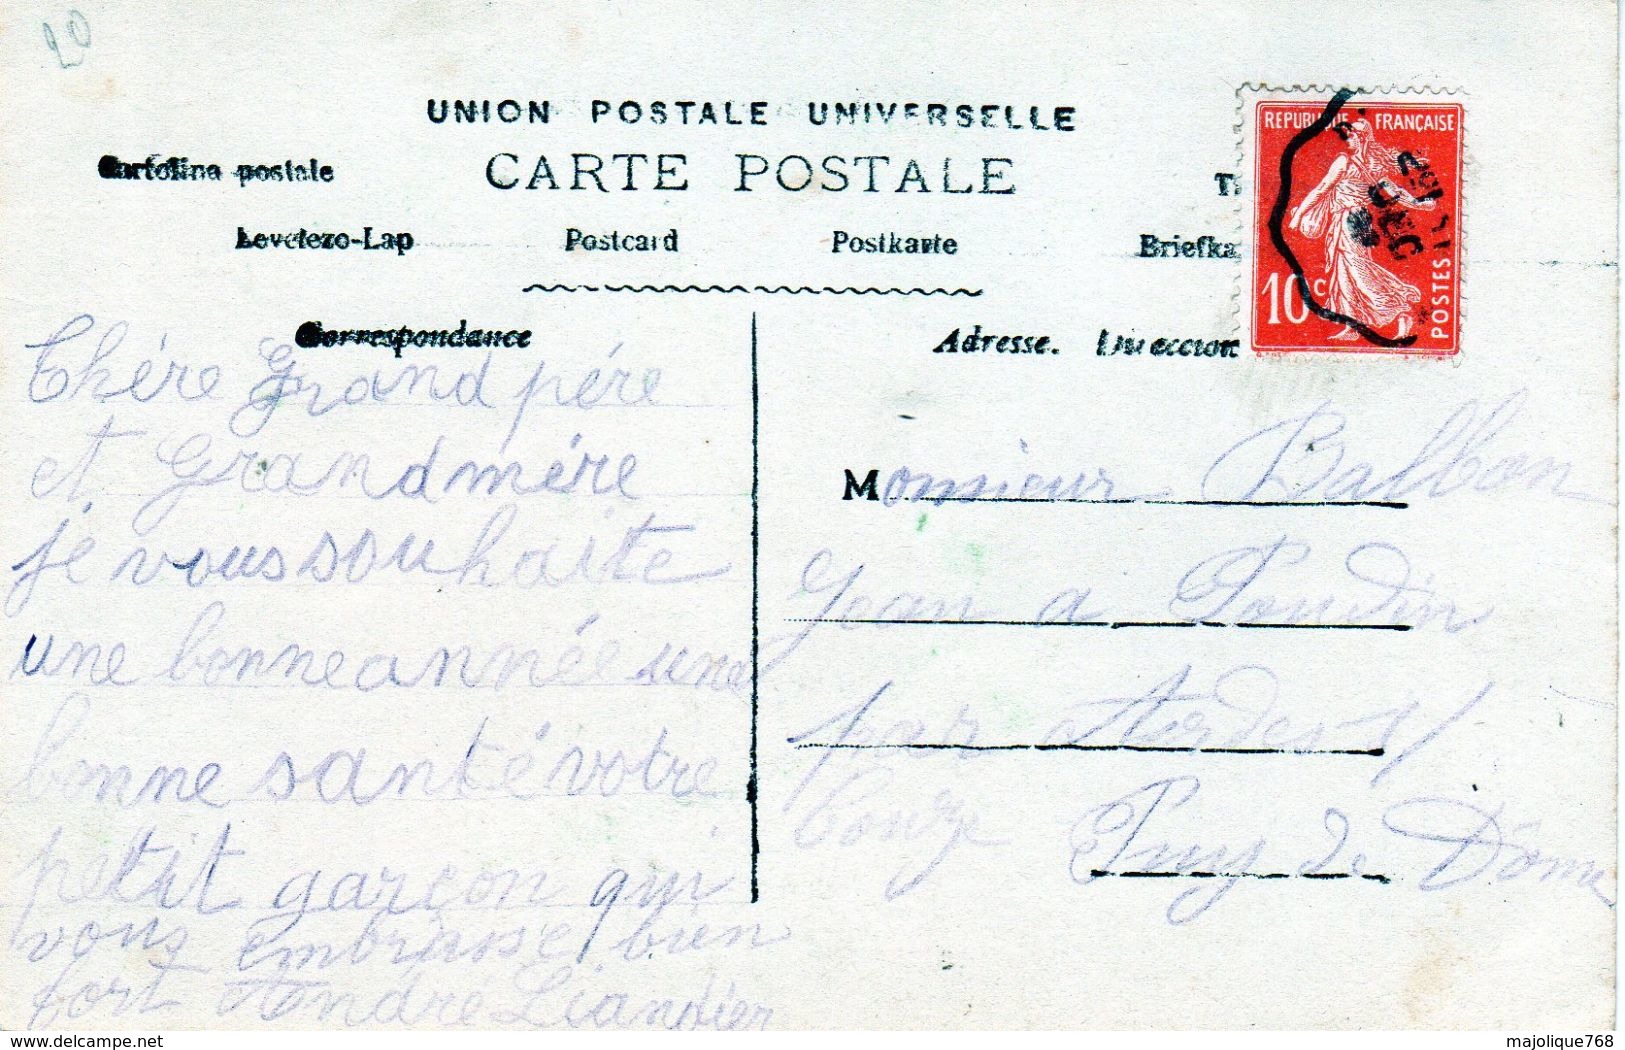 20
UNION POSTALE UNIVERSELLE
Cartolina postale CARTE POSTALE
Levelezo-Lap Postcard Postkarte Briefka
Correspondance
Chére Grand pére
et Grand mére
je vous souhaite
une bonne année une
bonne santé votre
petit garçon qui
vous embrasse bien
fort André Liandier
REPUBLIQUE FRANÇAISE
10 c
POSTES
Adresse. Direccion
Monsieur Balbon
Jean a
par Ardes s/
Couze
Puy de Dôme
majolique768